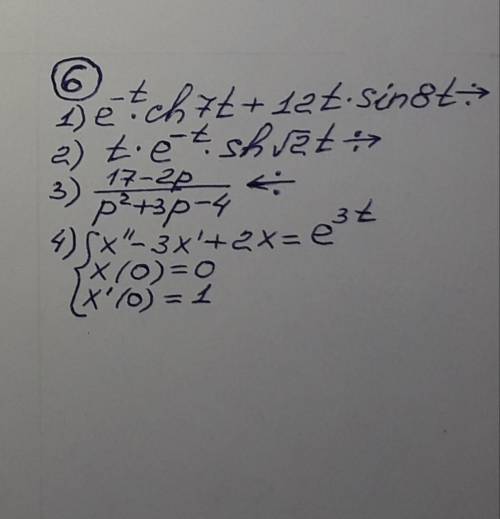 6
1) e^{-t}·ch7t + 12t·sin8t ⋅→
2) t·e^{-t}·sh√2t ⋅→
3) \frac{17-2p}{p^2+3p-4} ←⋅
4) { x'' - 3x' + 2x = e^{3t}
x(0) = 0
x'(0) = 1